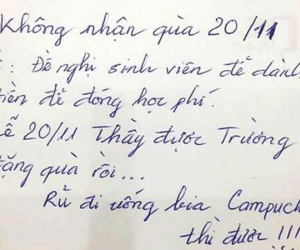 Không nhận qùa 20/11
: Đề nghị sinh viên để dành
tiền để đóng học phí.
Lễ 20/11 Thầy được Trường
tặng quà rồi...
Rủ đi uống bia Campuch
thì được !!!